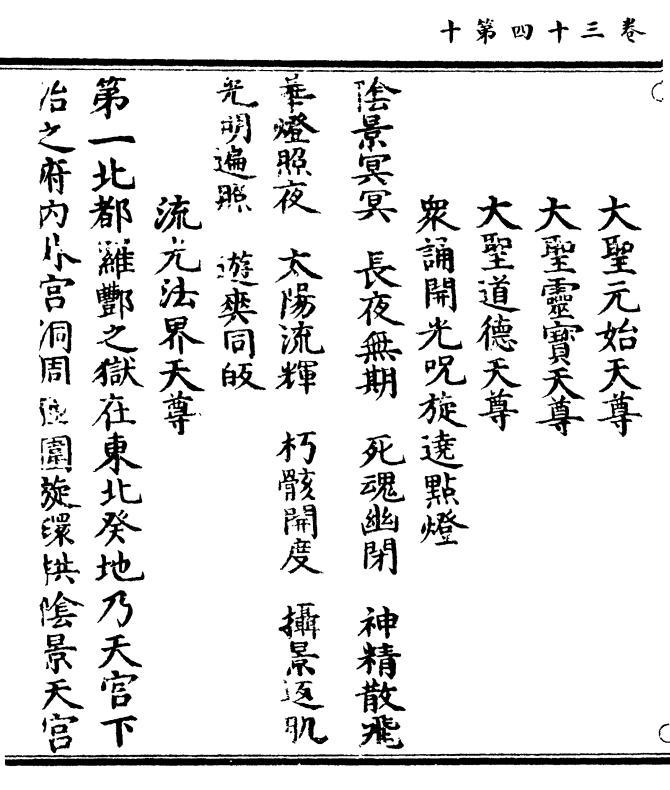 卷三十四第十
大聖元始天尊
大聖靈寶天尊
大聖道德天尊
衆誦開光呪旋遶點燈
陰景冥冥 長夜無期 死魂幽閉 神精散飛
華燈照夜 太陽流輝 朽骸開度 攝景返肌
光明遍照 遊爽同皈
流光法界天尊
第一北都羅酆之獄在東北癸地乃天宮下
治之府内外宮洞周圍旋環拱陰景天宮